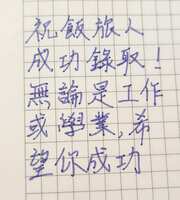 祝飯旅人
成功錄取!
無論是工作
或學業,希
望你成功